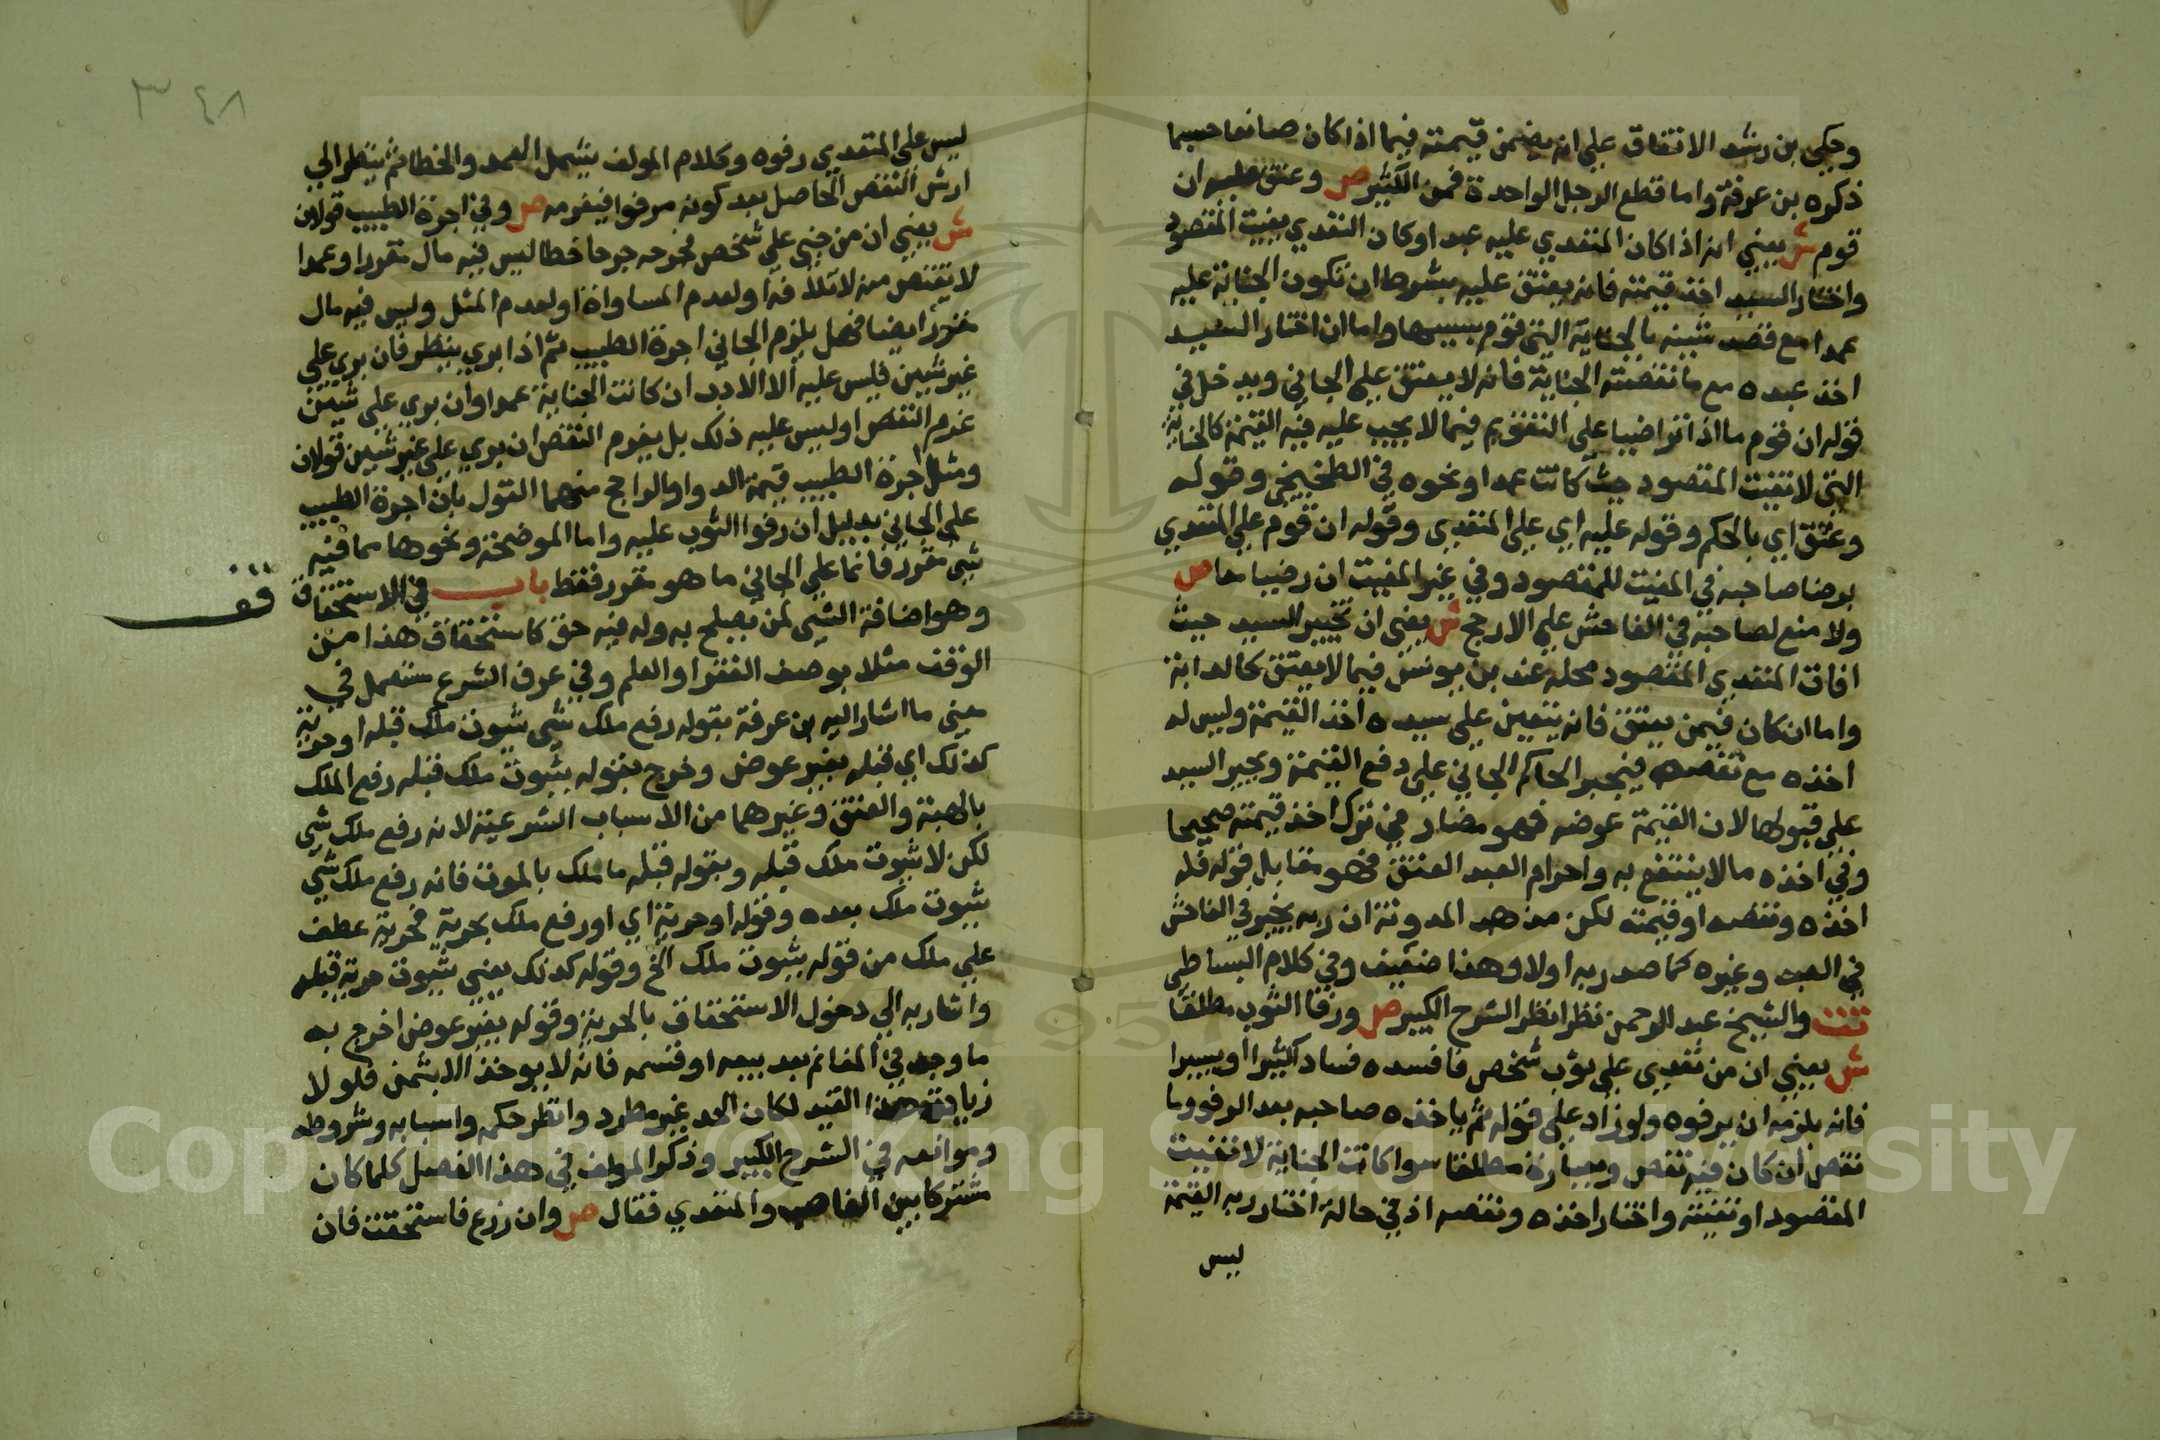 وحكى بن رشد الاتفاق على انه يضمن قيمته فيما اذا كان صانعا حسبما
ذكره بن عرفة واما قطع الرجل الواحدة فمن الكثير ص وعتق عليه ان
قوم ش يعني انه اذا كان المتعدي عليه عبدا وكان التعدي يفيت المقصود
واختار السيد اخذ قيمته فانه يعتق عليه بشرط ان تكون الجناية عليه
عمدا مع قصد شينه بالجناية التي قوم بسببها واما ان اختار السيد
اخذ عبده مع ما نقصته الجناية فانه لا يعتق على الجاني ويدخل في
قوله ان قوم ما اذا تراضيا على التقويم فيما لا يجب عليه فيه القيمة كالجناية
التي لا تفيت المقصود حيث كانت عمدا ونحوه في الطخيخي وقوله
وعتق اي بالحكم وقوله عليه اي على المتعدي وقوله ان قوم على المتعدي
برضا صاحبه في المفيت للمقصود وفي غير المفيت ان رضيا معا ص
ولا منع لصاحبه في الفاحش على الارجح ش يعني ان تخيير السيد حيث
افات المتعدي المقصود محله عند بن يونس فيما لا يعتق كالدابة
واما ان كان فيمن يعتق فانه يتعين على سيده اخذ القيمة وليس له
اخذه مع نقصه فيجبر الحاكم الجاني على دفع القيمة ويجبر السيد
على قبولها لان القيمة عوضه فهو مضار في ترك اخذ قيمته صحيحا
وفي اخذه ما لا ينتفع به واحرام العبد العتق فهو مقابل قوله فله
اخذه ونقصه او قيمته لكن مذهب المدونة ان ربه يخير في الفاحش
في العبد وغيره كما صدر به اولا وهذا ضعيف وفي كلام البساطي
تت والشيخ عبد الرحمن نظر انظر الشرح الكبير ص ورفا الثوب مطلقا
ش يعني ان من تعدى على ثوب شخص فافسده فسادا كثيرا او يسيرا
فانه يلزمه ان يرفوه ولو زاد على قوله ثم ياخذه صاحبه بعد الرفو وما
نقص ان كان فيه نقص وعبارة مطلقا سوا كانت الجناية لا تفيت
المقصود او تفيته واختار اخذه ونقصه اذ في حالة اختار ربه القيمة
ليس
٣٤٨
ليس على المتعدي رفوه وكلام المولف يشمل العمد والخطا ثم ينظر الى
ارش النقص الحاصل بعد كونه مرفوا فيغرمه ص وفي اجرة الطبيب قولان
ش يعني ان من جنى على شخص فجرحه جرحا خطا ليس فيه مال مقرر او عمدا
لا يقتص منه لاتلافه او لعدم المساواة او لعدم المثل وليس فيه مال
مقرر ايضا فهل يلزم الجاني اجرة الطبيب ثم اذا بري ينظر فان بري على
غير شين فليس عليه الا الادب ان كانت الجناية عمدا وان بري على شين
غرم النقص او ليس عليه ذلك بل يغرم النقص ان بري على غير شين قولان
ومثل اجرة الطبيب قيمة الدوا والراجح منهما القول بان اجرة الطبيب
على الجاني بدليل ان رفوا الثوب عليه واما الموضحة ونحوها مما فيه
شي مقرر فانما على الجاني ما هو مقرر فقط باب في الاستحقاق
قف
وهو اضافة الشي لمن يصلح به وله فيه حق كاستحقاق هذا من
الوقف مثلا بوصف الفقر او العلم وفي عرف الشرع يستعمل في
معنى ما اشار اليه بن عرفة بقوله رفع ملك شي بثبوت ملك قبله او حرية
كذلك اي قبله بغير عوض وخرج بقوله بثبوت ملك قبله رفع الملك
بالهبة والعتق وغيرهما من الاسباب الشرعية لانه رفع ملك شي
لكن لا بثبوت ملك قبله وبقوله قبله ما ملك بالموت فانه رفع ملك شي
بثبوت ملك بعده وقوله او حرية اي او رفع ملك بحرية فحرية عطف
على ملك من قوله بثبوت ملك الخ وقوله كذلك يعني بثبوت حرية قبله
واشار به الى دخول الاستحقاق بالحرية وقوله بغير عوض اخرج به
ما وجد في المغانم بعد بيعه او قسمه فانه لا يوخذ الا بثمن فلو لا
زيادة هذا القيد لكان الحد غير مطرد وانظر حكمه واسبابه وشروطه
وموانعه في الشرح الكبير وذكر المولف في هذا الفصل كلما كان
مشتركا بين الغاصب والمتعدي فقال ص وان زرع فاستحقت فان